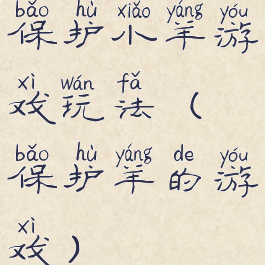 bǎo hù xiǎo yáng yóu
保护小羊游
xì wán fǎ
戏玩法(
bǎo hù yáng de yóu
保护羊的游
xì
戏)